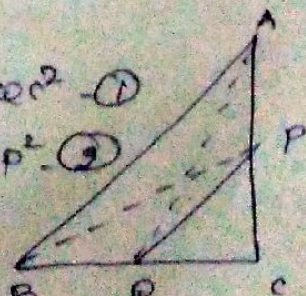 A
QC² - ①
P² - ②
P
B Q C